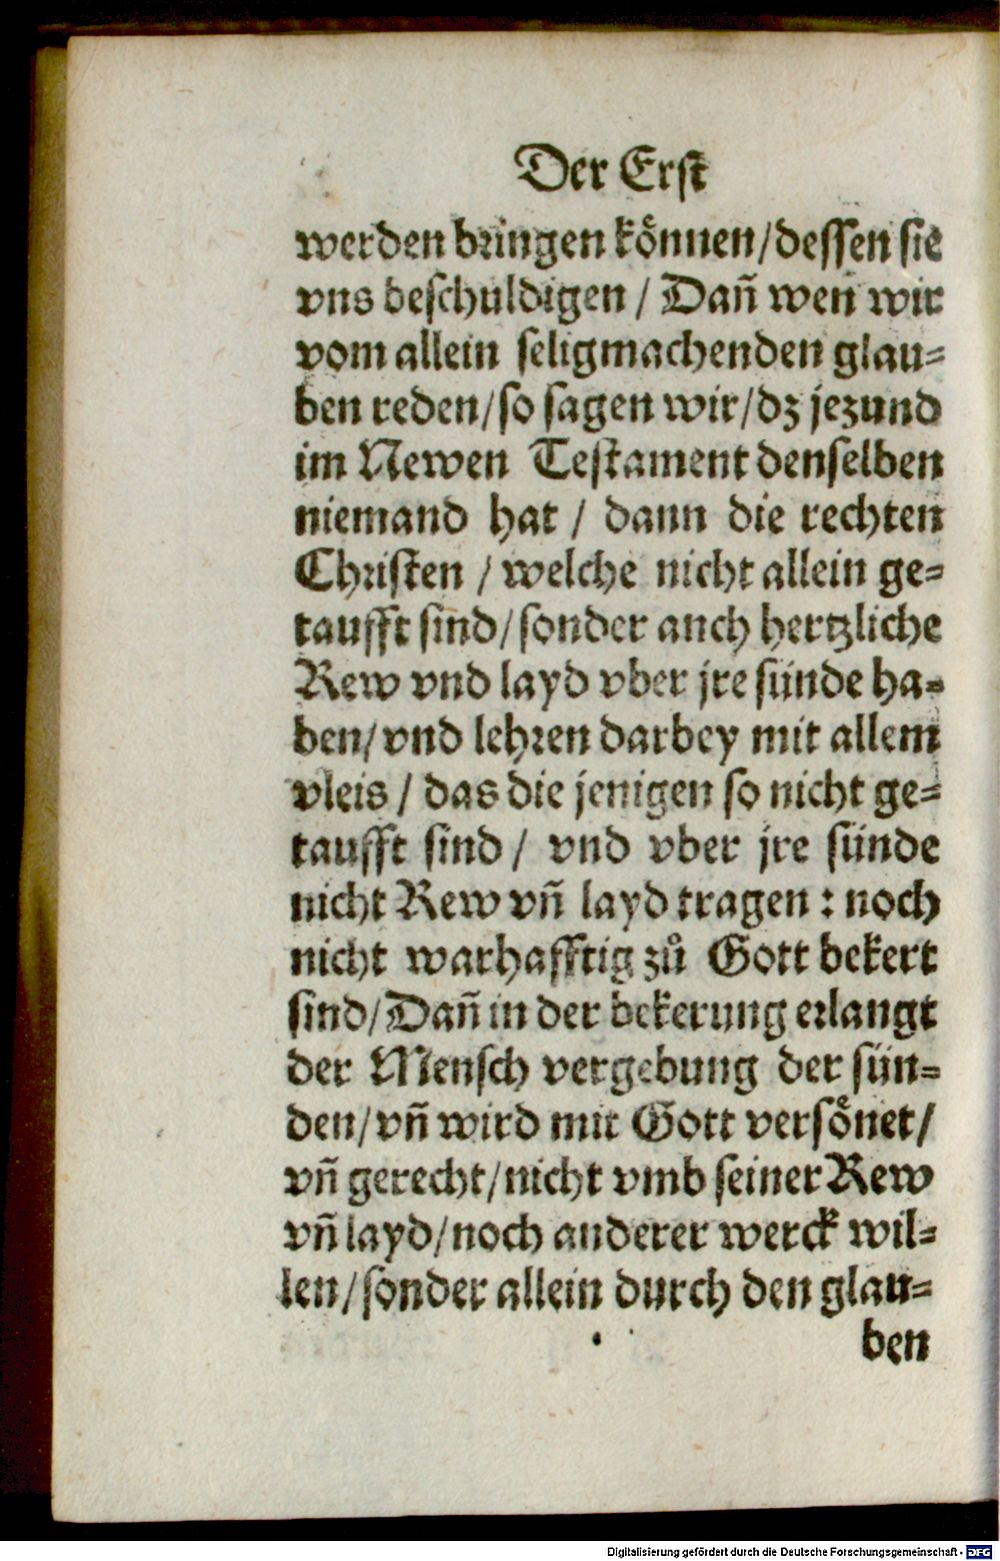 Der Erst
werden bringen können/dessen sie
vns beschuldigen / Dañ weñ wir
vom allein seligmachenden glau-
ben reden/so sagen wir/dz jezund
im Newen Testament denselben
niemand hat / dann die rechten
Christen / welche nicht allein ge-
taufft sind/sonder auch hertzliche
Rew vnd layd vber jre sünde ha-
ben/vnd lehren darbey mit allem
vleis / das die jenigen so nicht ge-
taufft sind / vnd vber jre sünde
nicht Rew vñ layd tragen : noch
nicht warhafftig zů Gott bekert
sind/Dañ in der bekerung erlangt
der Mensch vergebung der sün-
den/vñ wird mit Gott versönet/
vñ gerecht/nicht vmb seiner Rew
vñ layd/noch anderer werck wil-
len/sonder allein durch den glau-
ben
Digitalisierung gefördert durch die Deutsche Forschungsgemeinschaft - DFG